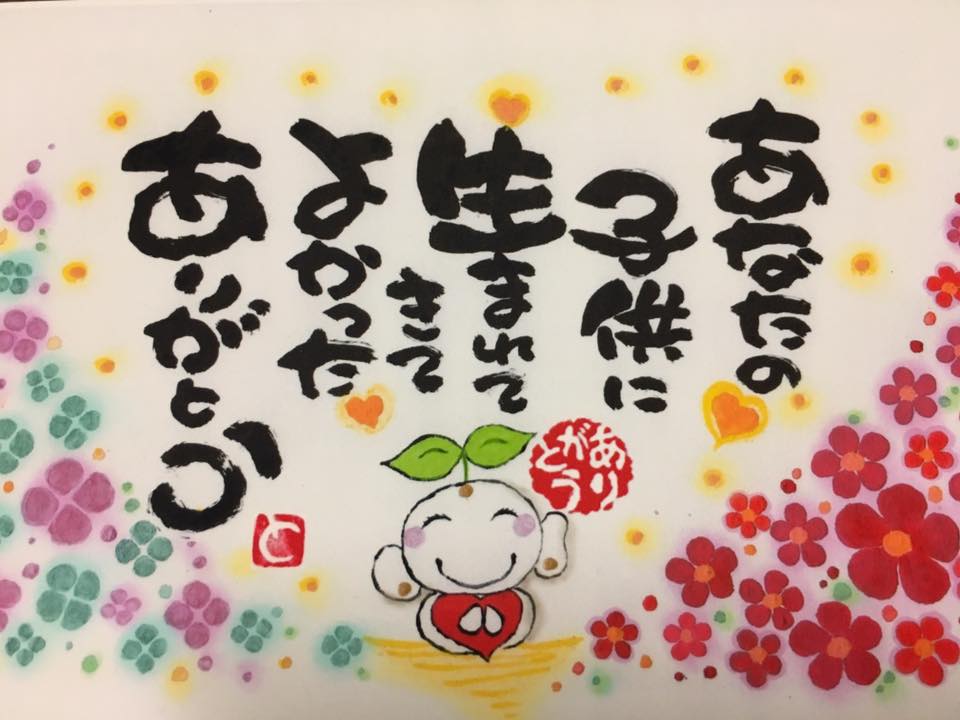 あなたの
子供に
生まれて
きて
よかった
ありがとう
ありがとう